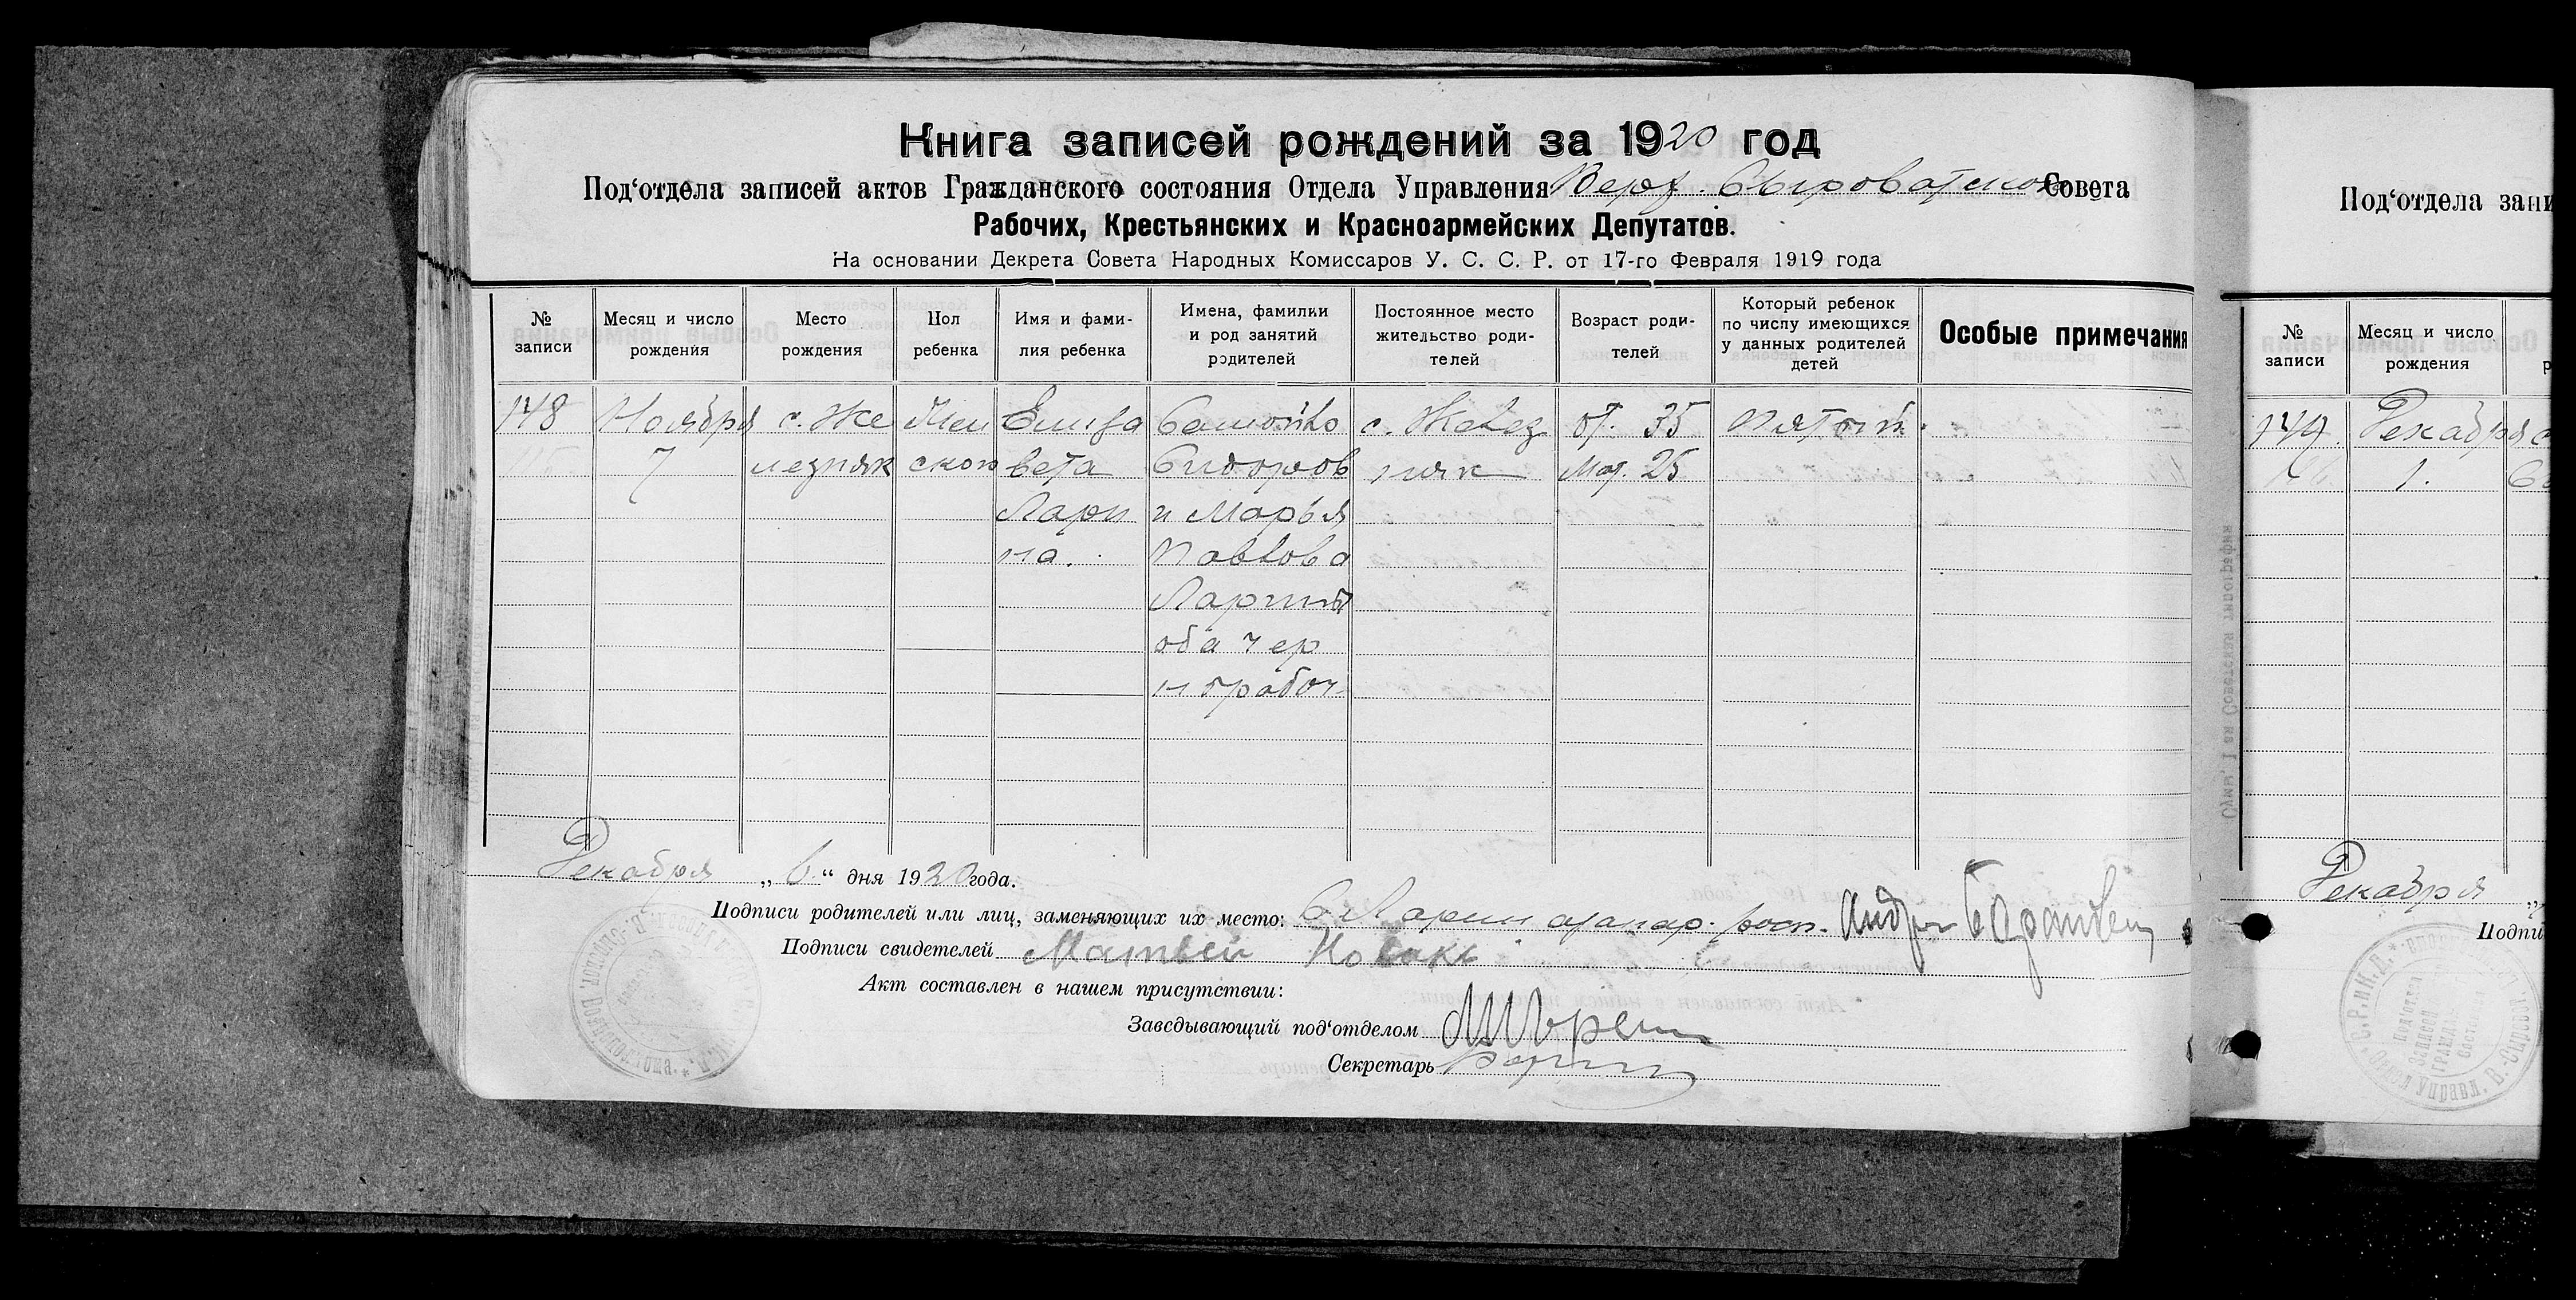 Книга записей рождений за 1920 год
Под‘отдела записей актов Гражданского состояния Отдела Управления Верх. Сыроватского Совета
Рабочих, Крестьянских и Красноармейских Депутатов.
На основании Декрета Совета Народных Комиссаров У. С. С. Р. от 17-го Февраля 1919 года
№ записи
Месяц и число рождения
Место рождения
Пол ребенка
Имя и фами-
лия ребенка
Имена, фамилки
и род занятий
родителей
Постоянное место
жительство роди-
телей
Возраст роди-
телей
Который ребенок
по числу имеющихся
у данных родителей
детей
Особые примечания
148
Ноября
7
с. Же
лезняк
Жен
ского
Елиза
вета
Лари
на.
Самойло
Сидоров
и Марья
Павлова
Ларины
оба чер
норабоч
с. Желез
няк
от. 35
мат. 25
Пятый.
Декабря „6“ дня 1920 года.
Подписи родителей или лиц, заменяющих их место: С. Ларин Андрей
Подписи свидетелей Матвей Новакъ
Акт составлен в нашем присутствии:
Заведывающий под‘отделом
Секретарь
Под‘отдела запи
№ записи
Месяц и число
рождения
149
Декабря
1.
Декабря „
Подпи